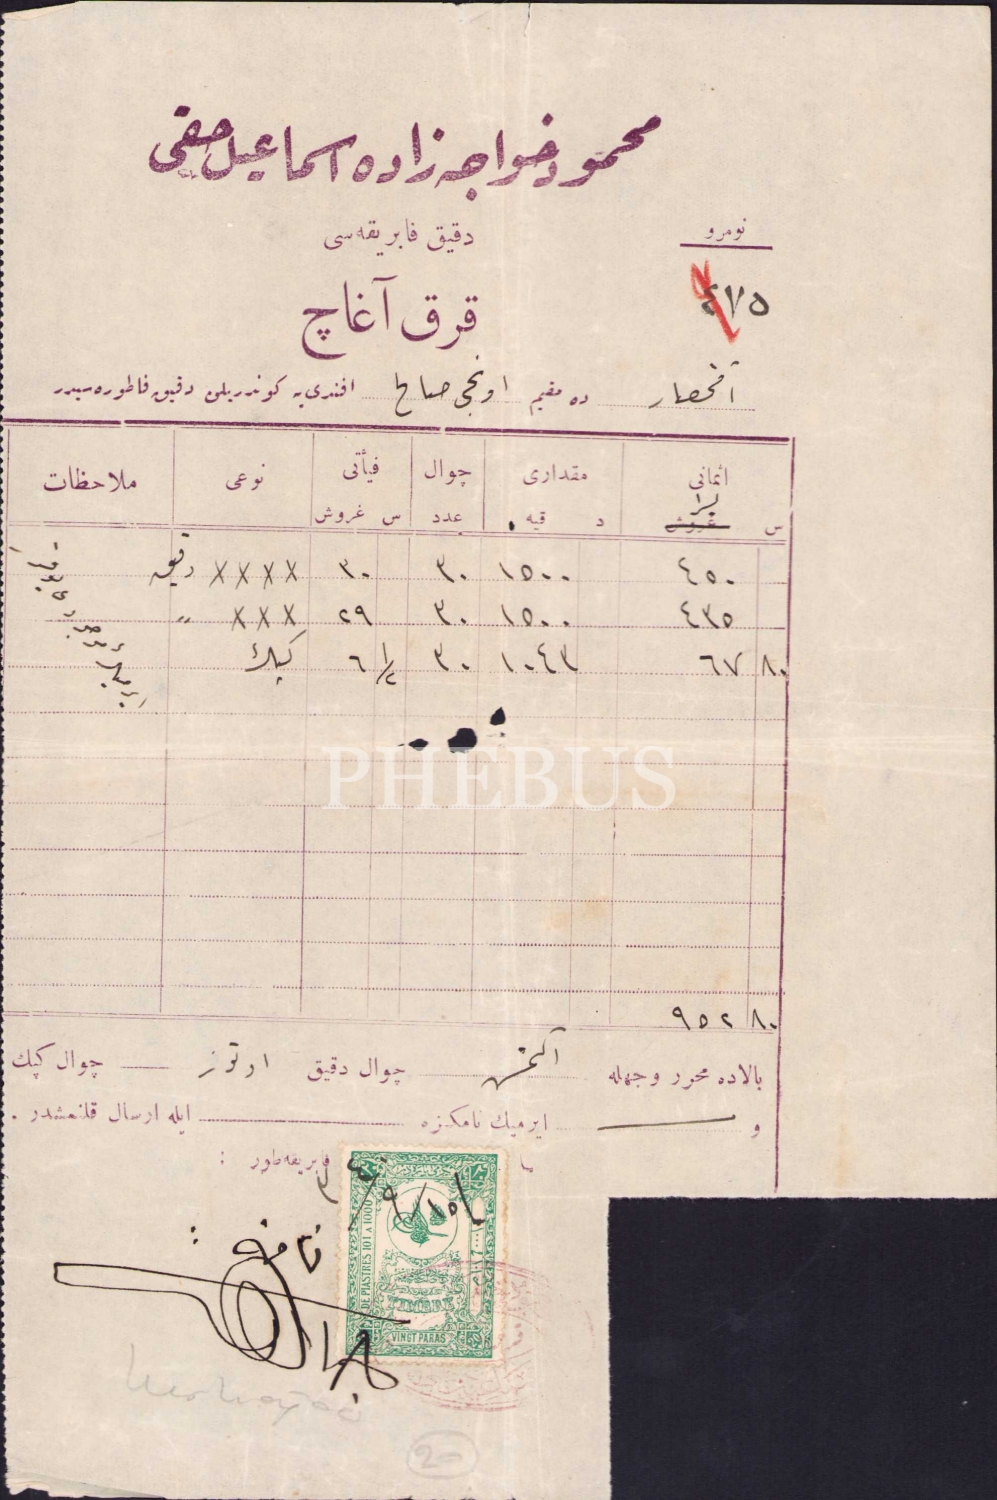 محمود خواجه زاده اسماعیل حقی
دقیق فابریقه‌سی
نومرو
٤٧٥
قرق آغاچ
آقحصار ده مقیم اونجی صالح افندی یه کوندریلن دقیق فاطوره سیدر
اثمانی مقداری چوال فیأتی نوعی ملاحظات
س غروش لیرا د قیه عدد س غروش
٤٥٠ ١٥٠٠ ٣٠ ٣٠ XXXX دقیق
٤٣٥ ١٥٠٠ ٣٠ ٢٩ XXX "
٨٠ ٦٧ ١٠٤٣ ٣٠ ٦ ١/٢ کپك
٨٠ ٩٥٢
بالاده محرر وجهله آلتمش چوال دقیق اوتوز چوال کپك
و ایرمیك نامکزه ایله ارسال قلنمشدر .
فابریقه‌طور :
DE PIASTRES 101 A 1000
TIMBRE
VINGT PARAS
PHEBUS
20